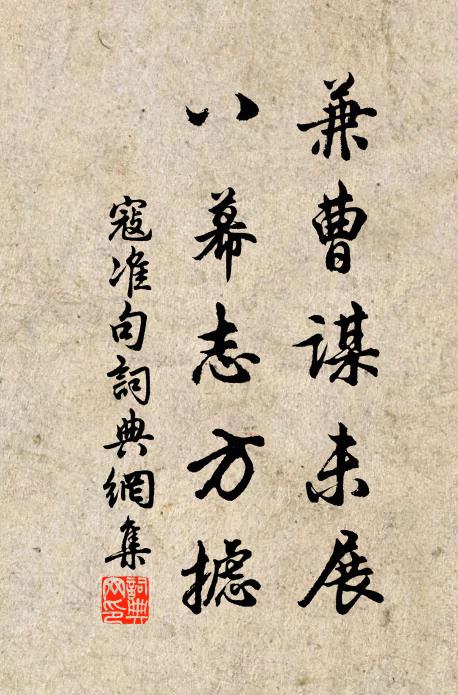 兼曹謀未展
八幕志方攄
寇準句詞典網集
詞典網印